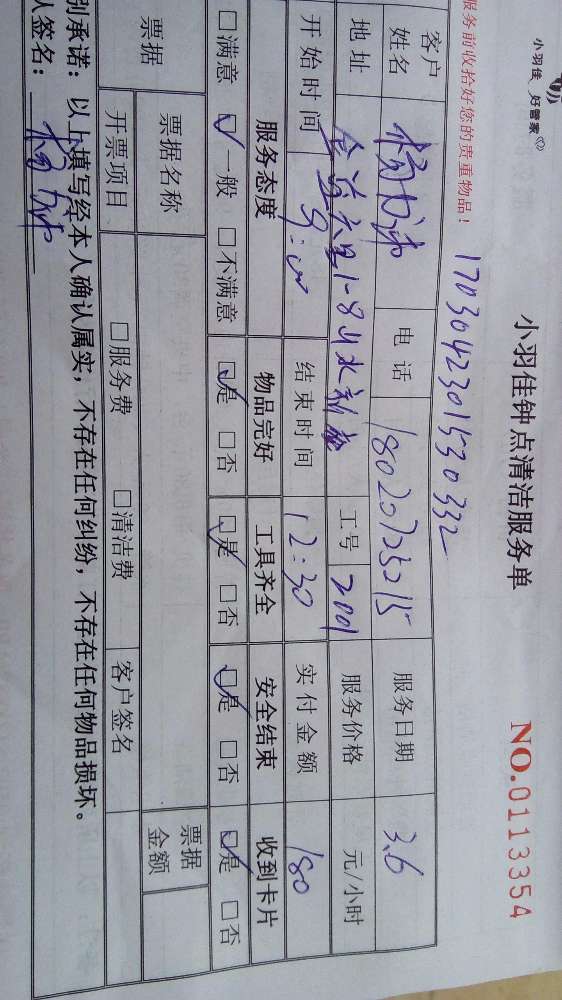 小羽佳 好管家
小羽佳钟点清洁服务单
NO.0113354
服务前收拾好您的贵重物品！
170304230153 0332
客户姓名 电话 18020725215 服务日期 3.6
地址 1-8 工号 2001 服务价格 元/小时
开始时间 9:00 结束时间 12:30 实付金额 180
服务态度 物品完好 工具齐全 安全结束 收到卡片
□满意 ☑一般 □不满意 ☑是 □否 ☑是 □否 ☑是 □否 ☑是 □否
票据 票据名称 票据金额
开票项目 □服务费 □清洁费 客户签名
别承诺：以上填写经本人确认属实，不存在任何纠纷，不存在任何物品损坏。
人签名：